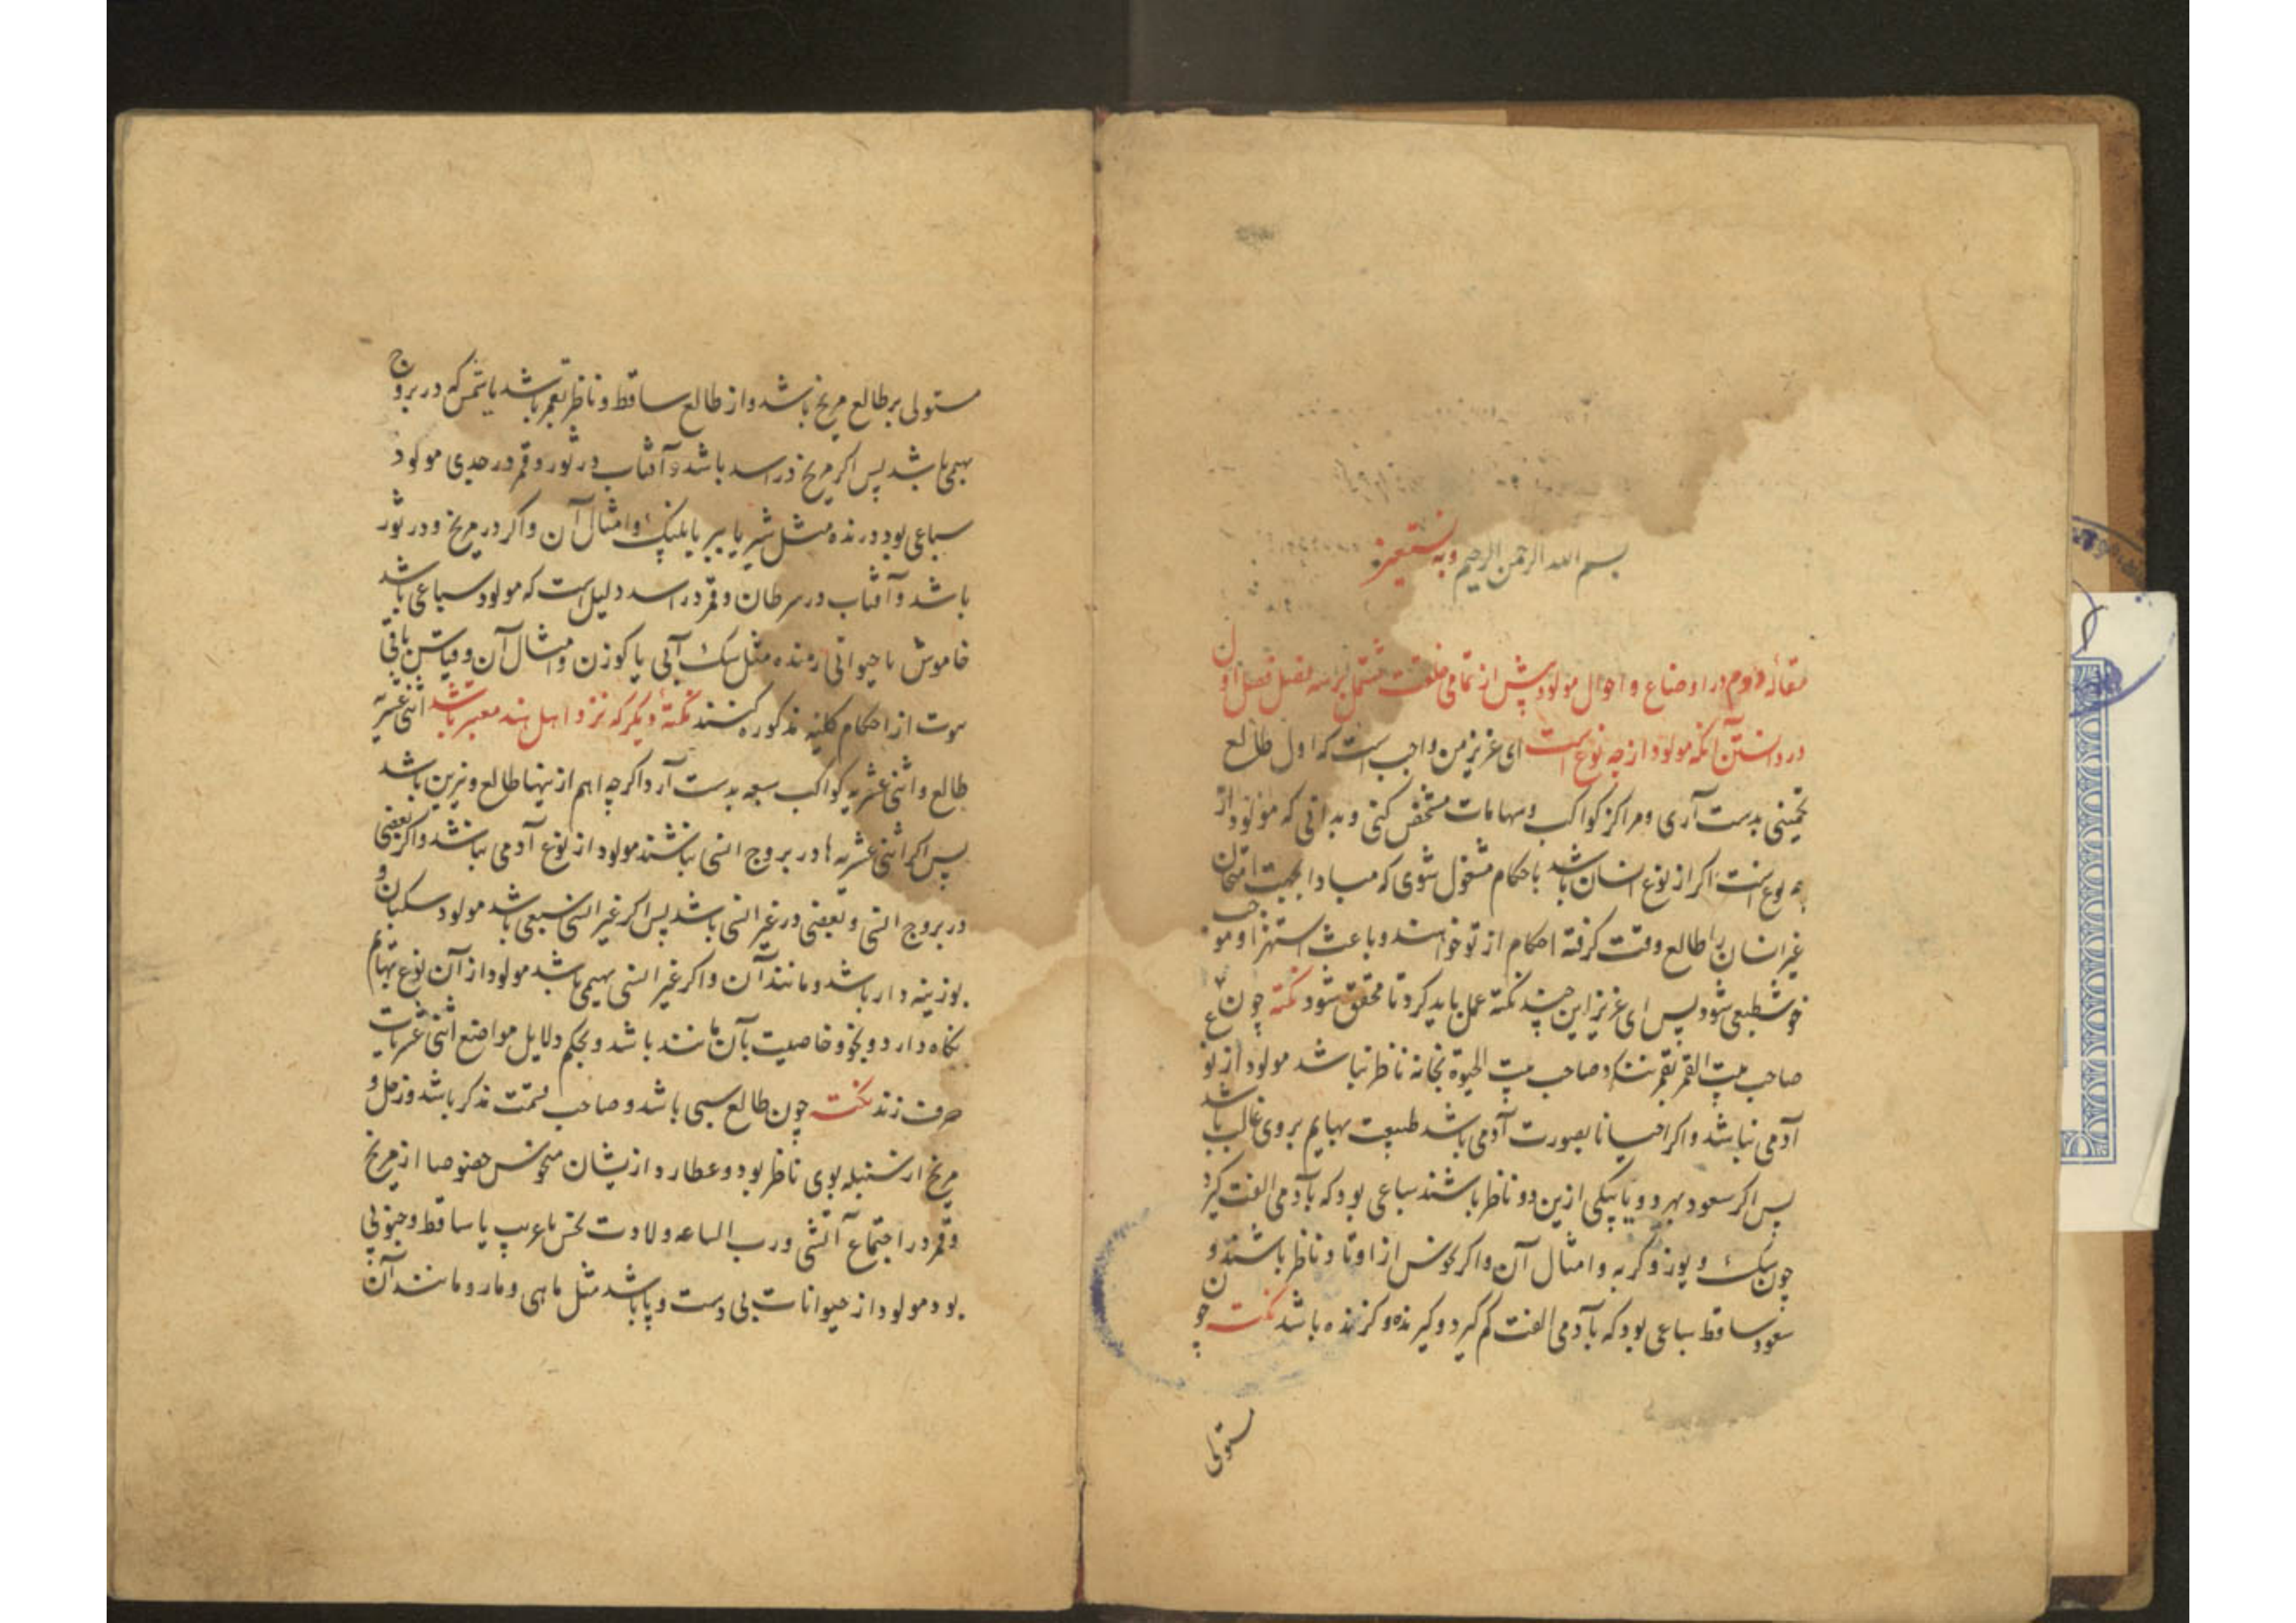 بسم الله الرحمن الرحیم وبه نستعین
مقاله دوم در اوضاع و احوال مولود پیش از تمامی خلقت مشتمل بر سه فصل فصل اول
در دانستن آنکه مولود از چه نوع است ای عزیز من واجب است که اول طالع
تخمینی بدست آری و مراکز کواکب و سهامات مشخص کنی و بدانی که مولود از
چه نوع است اگر از نوع انسان باشد باحکام مشغول شوی که مبادا بجهت امتحان
غیر انسان را طالع وقت گرفته احکام از تو خواهند و باعث استهزا و موجب
خوش طبعی شود پس ای عزیز این چند نکته عمل باید کرد تا محقق شود نکته چون
صاحب بیت القمر بقمر ننگرد و صاحب بیت الحیوة بخانه ناظر نباشد مولود از نوع
آدمی نباشد و اگر احیانا بصورت آدمی باشد طبیعت بهایم بروی غالب باشد
پس اگر سعود بهر دو و یا بیکی ازین دو ناظر باشند سباعی بود که با آدمی الفت گیرد
چون سگ و یوز و گربه و امثال آن و اگر نحوس از اوتاد ناظر باشند و
سعود ساقط سباعی بود که با آدمی الفت کم گیرد و گیرنده و گزنده باشد نکت چون
مستولی
مستولی بر طالع مریخ باشد و از طالع ساقط و ناظر بقمر باشد یا بشمس که در بروج
بهیمی باشد پس اگر مریخ در اسد باشد و آفتاب در ثور و قمر در جدی مولود
سباعی بود درنده مثل شیر یا ببر یا پلنگ و امثال آن و اگر در مریخ و در ثور
باشد و آفتاب در سرطان و قمر در اسد دلیل است که مولود سباعی باشد
خاموش یا حیوانی رمنده مثل سگ آبی یا گوزن و امثال آن و قیاس باقی
صوت از احکام کلیه مذکوره کنند نکته دیگر که نزد اهل هند معتبر باشد اثنی عشریه
طالع و اثنی عشریه کواکب سبعه بدست آرد اگرچه اهم ازینها طالع و نیرین باشد
پس اگر اثنی عشریه ها در بروج انسی نباشند مولود از نوع آدمی نباشد و اگر بعضی
در بروج انسی و بعضی در غیر انسی باشد پس اگر غیر انسی سبعی باشد مولود سگبان و
بوزینه دار باشد و مانند آن و اگر غیر انسی بهیمی باشد مولود از آن نوع بهایم
نگاه دارد و بخو و خاصیت بآن مانند باشد و بحکم دلایل مواضع اثنی عشریات
حرف زند نکت چون طالع سبعی باشد و صاحب قسمت مذکر باشد و زحل و
مریخ از سنبله بوی ناظر بود و عطارد ازیشان منحوس خصوصا از مریخ
و قمر در اجتماع آتشی و رب الساعه ولادت نحس یا غریب یا ساقط و جنوبی
بود مولود از حیوانات بی دست و پا باشد مثل ماهی و مار و مانند آن